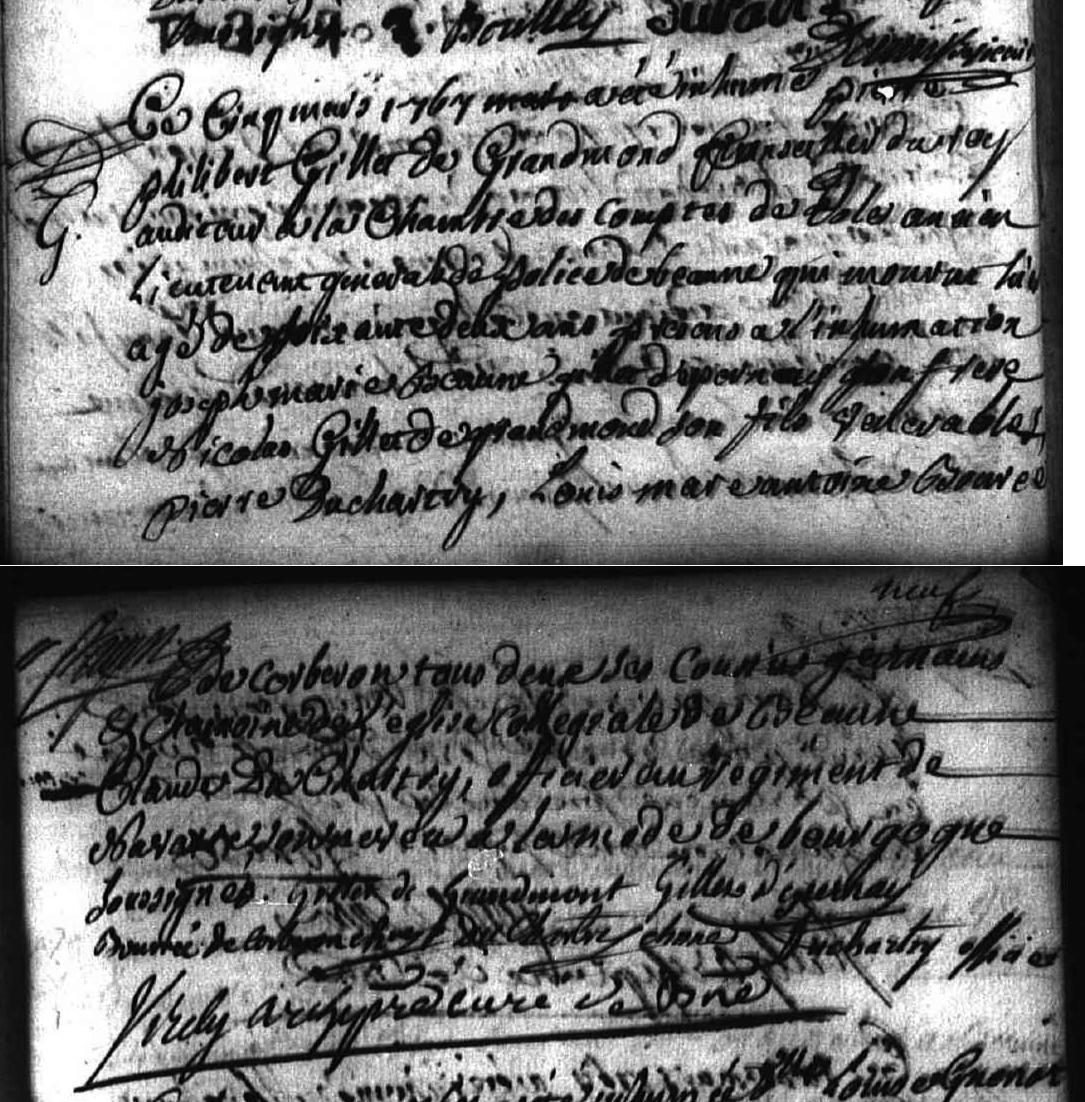 Bouilly
Ce Cinq mars 1767 mars a été inhumé pierre
philibert Gillet de Grandmond Conseiller du roy
auditeur à la Chambre des Comptes de Dole ancien
Lieutenent general de Police de beaune qui mourut hier
agé de soixante deux ans presens a l'inhumation
joseph marie Beaune gillet d'epernay son frere
Nicolas Gillet de grandmond son fils Venerables
pierre Duchartry, Louis marc antoine Bourée
neuf
de corberon tous deux ses Cousins germains
& Chanoine de L'eglise Collegiale de Beaune
Claude Du Chartry, officier au regiment de
Navarre son neveu a la mode de bourgogne
soussignés. Gillet de Grandmont Gillet d'epernay
Bourrée de corberon Du Chartry chane Duchartry officier
Virely archyprê curé de Bsne
Louise